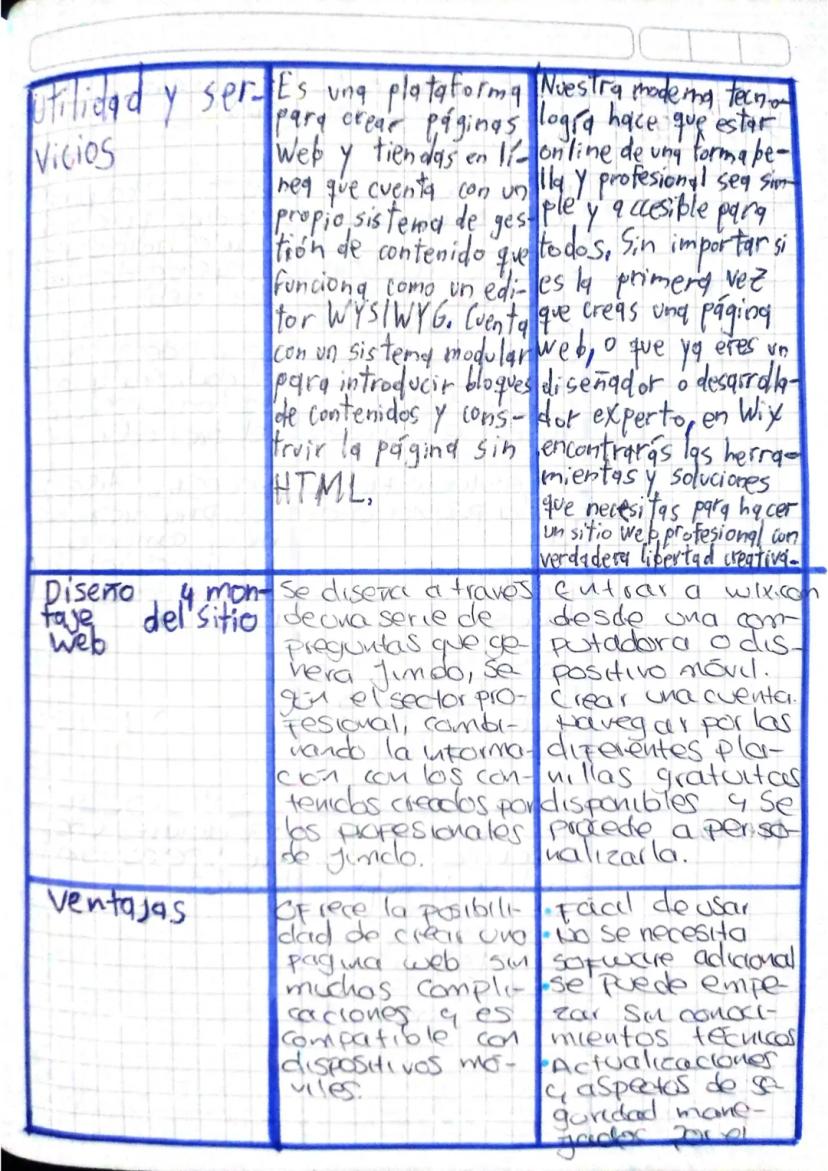 utilidad y ser-
vicios
Es una plataforma
para crear páginas
Web y tiendas en lí-
nea que cuenta con un
propio sistema de ges-
tión de contenido que
funciona como un edi-
tor WYSIWYG. Cuenta
con un sistema modular
para introducir bloques
de contenidos y cons-
truir la página sin
HTML.
Nuestra moderna tecno-
logía hace que estar
online de una forma be-
lla y profesional sea sim-
ple y accesible para
todos. Sin importar si
es la primera vez
que creas una página
web, o que ya eres un
diseñador o desarrolla-
dor experto, en Wix
encontrarás las herra-
mientas y soluciones
que necesitas para hacer
un sitio web profesional con
verdadera libertad creativa.
Diseño y mon-
taje del sitio
web
Se diseña a través
de una serie de
preguntas que ge-
nera Jimdo, se
gún el sector pro-
fesional, combi-
nando la informa-
ción con los con-
tenidos creados por
los profesionales
de jimdo.
Entrar a wix.com
desde una com-
putadora o dis-
positivo móvil.
Crear una cuenta.
Navegar por las
diferentes plan-
nillas gratuitas
disponibles y se
procede a perso-
nalizarla.
Ventajas
Ofrece la posibili-
dad de crear una
pagina web sin
muchas compli-
caciones y es
compatible con
dispositivos mó-
viles.
• Fácil de usar
• No se necesita
software adicional
• Se puede empe-
zar sin conoci-
mientos técnicos
• Actualizaciones
y aspectos de se
guridad mane-
jados por el